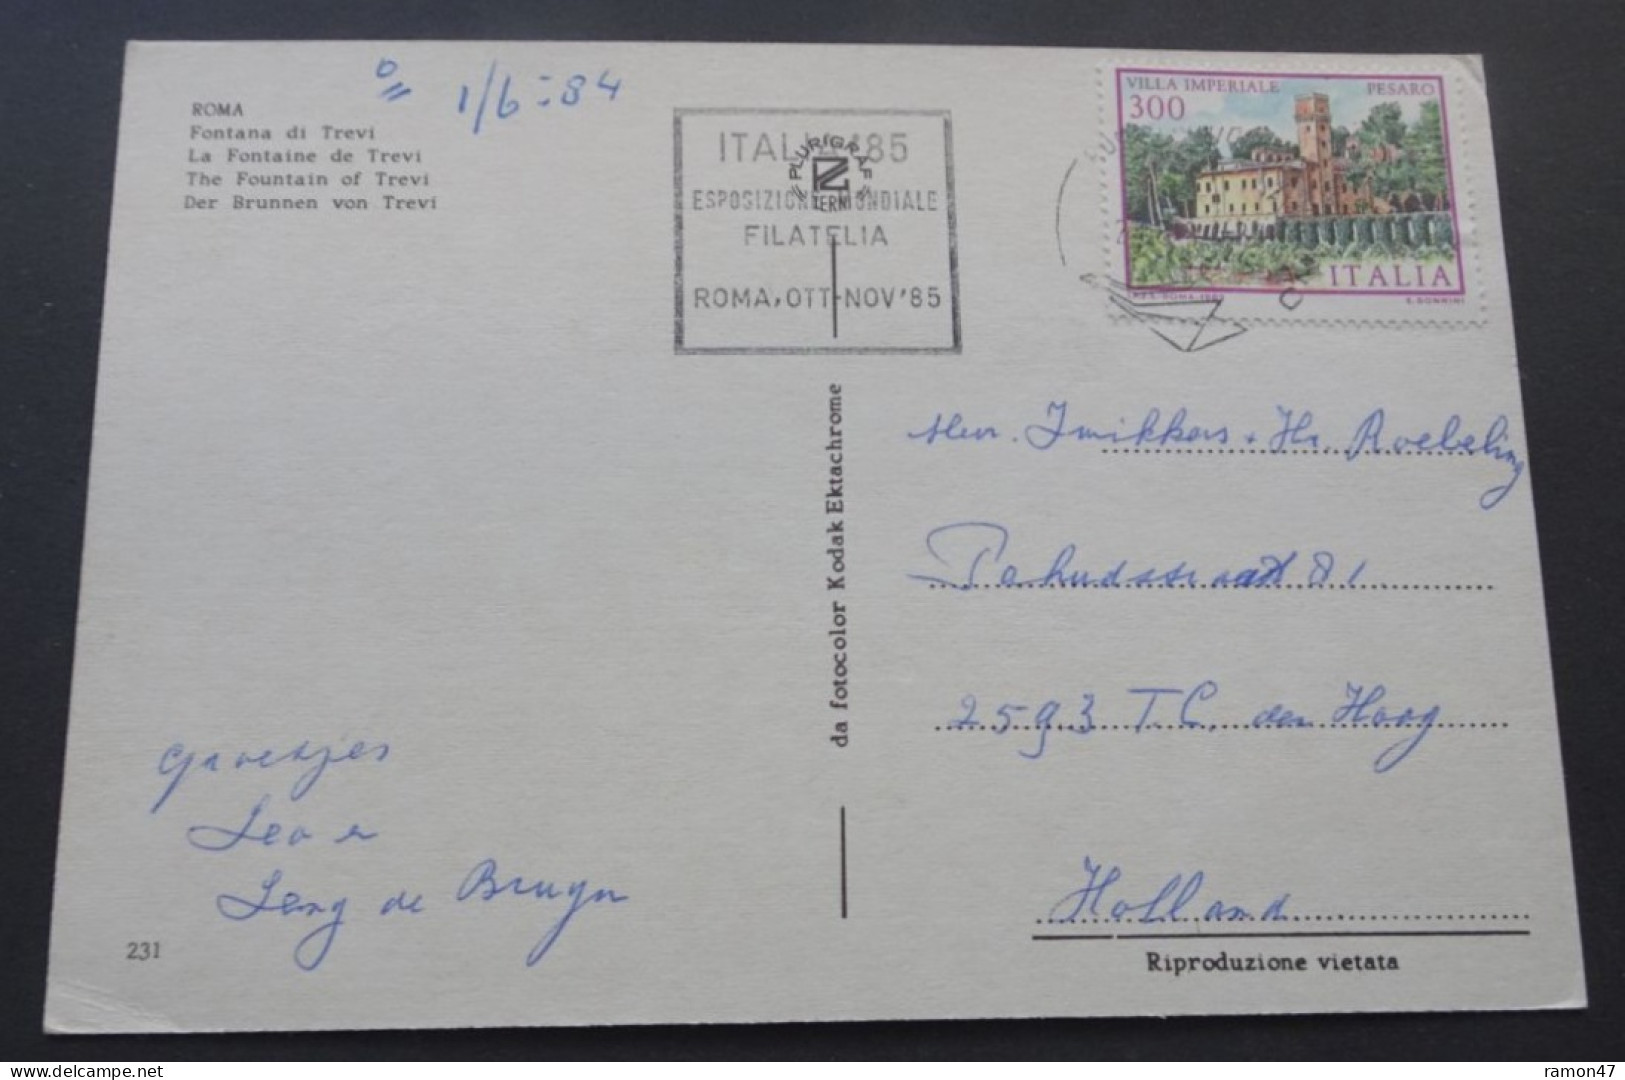 ROMA
Fontana di Trevi
La Fontaine de Trevi
The Fountain of Trevi
Der Brunnen von Trevi
1/6-84
ITALIA '85
ESPOSIZIONE MONDIALE
FILATELIA
ROMA, OTT-NOV '85
PLURIGRAF
TERNI
VILLA IMPERIALE PESARO
300
ITALIA
da fotocolor Kodak Ektachrome
Hr. Roebeling
81
2593 T.C. den Haag
Holland
Groetjes
Leo en
Leny de Bruyn
231
Riproduzione vietata
delcampe.net
ramon47